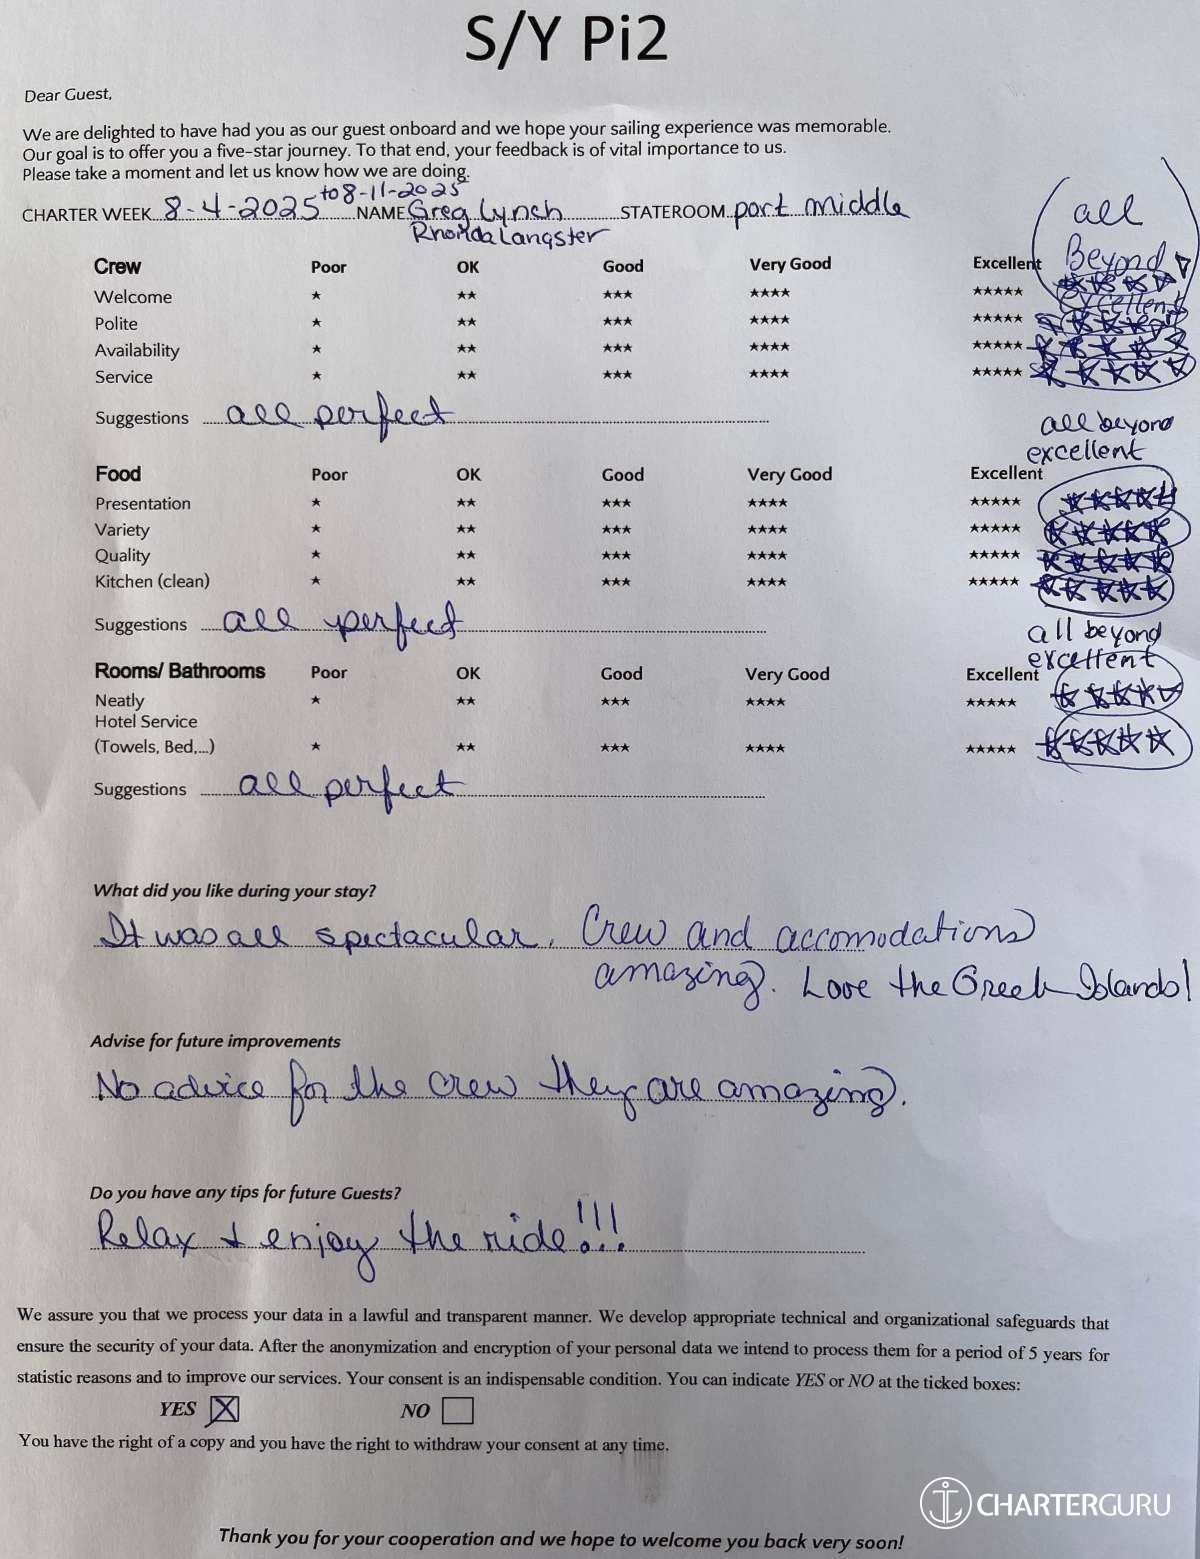 S/Y Pi2
Dear Guest,
We are delighted to have had you as our guest onboard and we hope your sailing experience was memorable.
Our goal is to offer you a five-star journey. To that end, your feedback is of vital importance to us.
Please take a moment and let us know how we are doing.
CHARTER WEEK 8-4-2025 to 8-11-2025 NAME Greg Lynch STATEROOM port middle
Rhonda Langster
all
Beyond
excellent
Crew Poor OK Good Very Good Excellent
Welcome ★ ★★ ★★★ ★★★★ ★★★★★
Polite ★ ★★ ★★★ ★★★★ ★★★★★
Availability ★ ★★ ★★★ ★★★★ ★★★★★
Service ★ ★★ ★★★ ★★★★ ★★★★★
Suggestions all perfect
all beyond
excellent
Food Poor OK Good Very Good Excellent
Presentation ★ ★★ ★★★ ★★★★ ★★★★★
Variety ★ ★★ ★★★ ★★★★ ★★★★★
Quality ★ ★★ ★★★ ★★★★ ★★★★★
Kitchen (clean) ★ ★★ ★★★ ★★★★ ★★★★★
Suggestions all perfect
all beyond
excellent
Rooms/ Bathrooms Poor OK Good Very Good Excellent
Neatly ★ ★★ ★★★ ★★★★ ★★★★★
Hotel Service
(Towels, Bed,...) ★ ★★ ★★★ ★★★★ ★★★★★
Suggestions all perfect
What did you like during your stay?
It was all spectacular. Crew and accomodations
amazing. Love the Greek Islands!
Advise for future improvements
No advice for the crew they are amazing.
Do you have any tips for future Guests?
Relax & enjoy the ride!!!
We assure you that we process your data in a lawful and transparent manner. We develop appropriate technical and organizational safeguards that
ensure the security of your data. After the anonymization and encryption of your personal data we intend to process them for a period of 5 years for
statistic reasons and to improve our services. Your consent is an indispensable condition. You can indicate YES or NO at the ticked boxes:
YES ☒ NO ☐
You have the right of a copy and you have the right to withdraw your consent at any time.
CHARTERGURU
Thank you for your cooperation and we hope to welcome you back very soon!